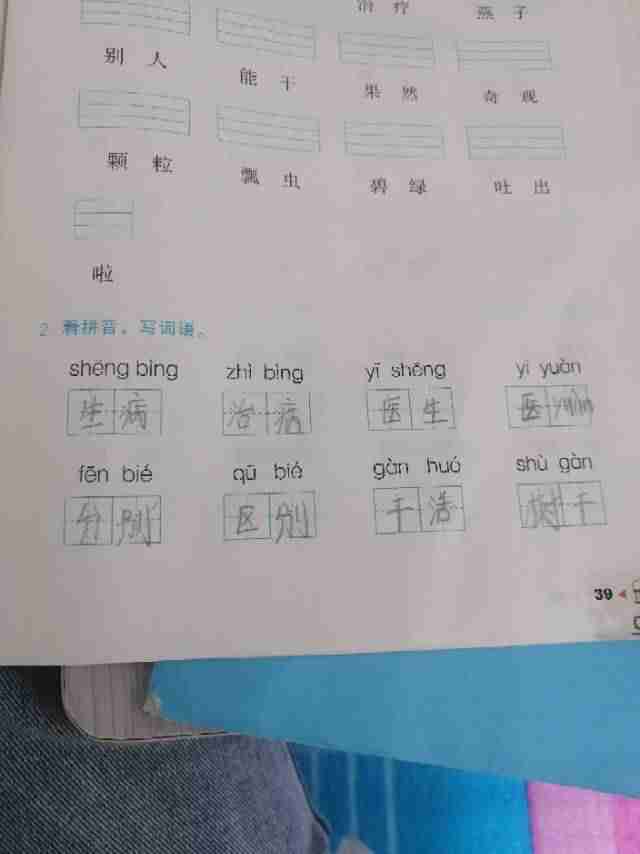 治 疗 燕 子
别 人 能 干 果 然 奇 观
颗 粒 瓢 虫 碧 绿 吐 出
啦
2 看拼音，写词语。
shēng bìng zhì bìng yī shēng yī yuàn
生病 治病 医生 医
fēn bié qū bié gàn huó shù gàn
分别 区别 干活 树干
39